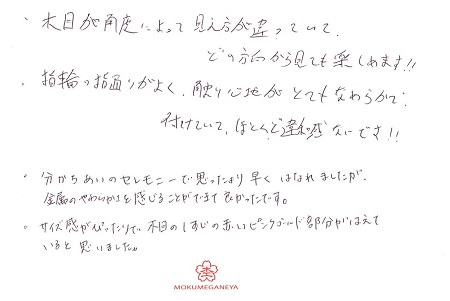 ・木目が角度によって見え方が違っていて、
どの方向から見ても楽しめます!!
・指輪の指通りがよく、触り心地がとてもなめらかで
付けていて、ほとんど違和感ないです!!
・分かちあいのセレモニーで思ったより早くはなれましたが、
金属のやわらかさを感じることができて良かったです。
・サイズ感がぴったりで木目の1すじの赤いピンクゴールド部分がはえて
いると思いました。
MOKUMEGANEYA